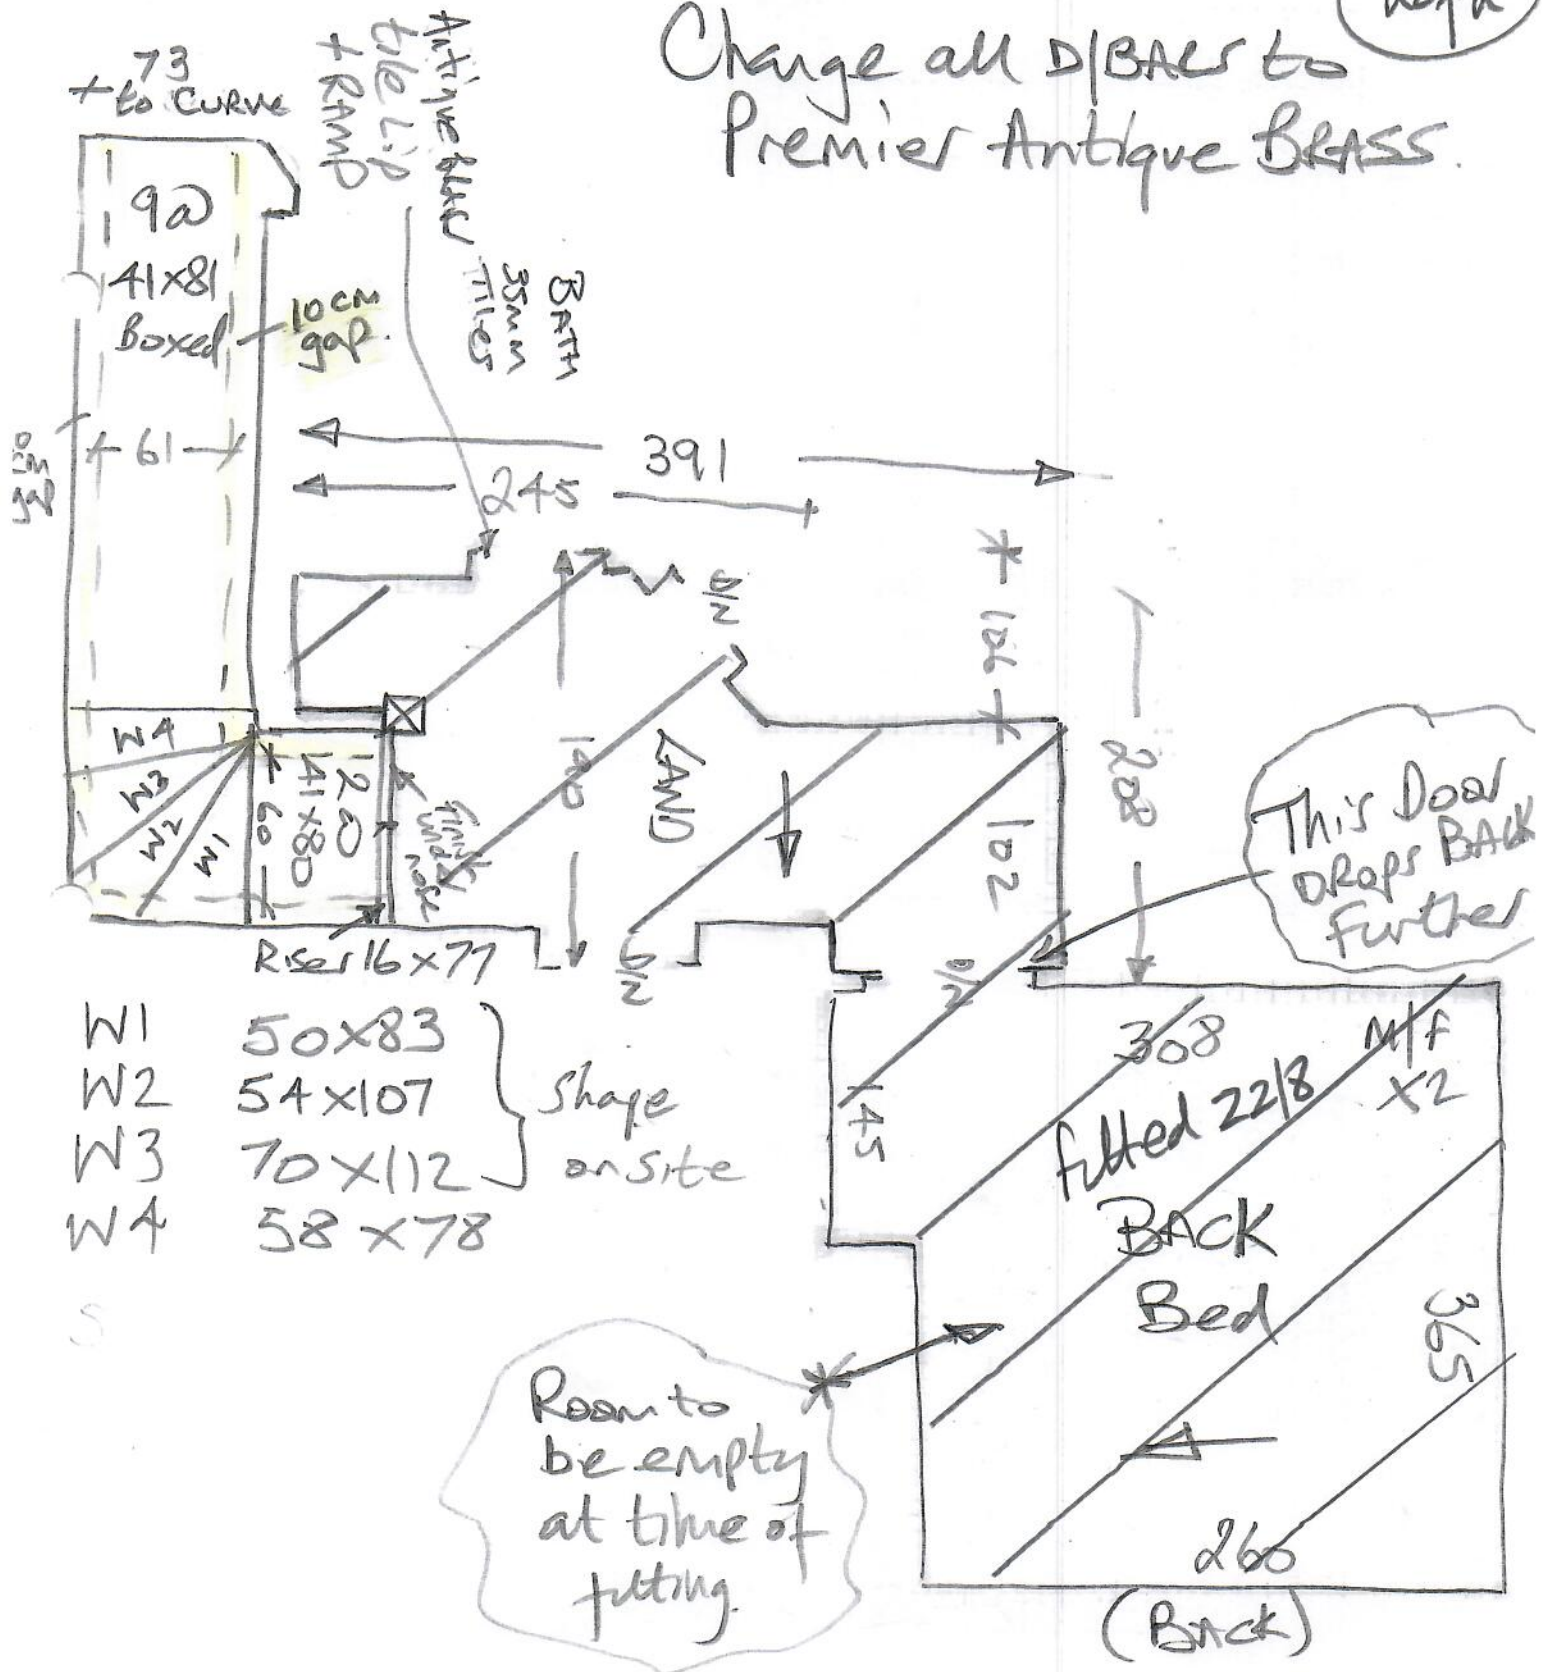 Change all D/BARS to
Premier Antique BRASS.
Antique BLACK
tile Lip
+ RAMP
73
+ to CURVE
9@
41x81
Boxed
10cm
gap.
BATH
35mm
Tiles
61
391
245
D/Z
106
208
190
LAND
102
W4
W3
W2
W1
60
41x80
2@
Finish
under
nose
Riser 16x77
D/Z
D/Z
This Door
DROPS BACK
further
W1 50x83
W2 54x107
W3 70x112
W4 58x78
Shape
on site
145
308
M/F
X2
fitted 22/8
BACK
Bed
365
260
(BACK)
Room to
be empty
at time of
fitting.